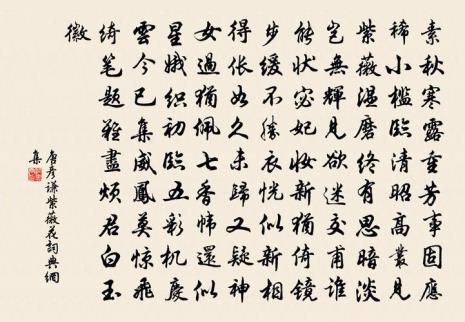 素秋寒露重芳事固應
稀小檻臨清昭高叢見
紫薇溫磨終有思暗淡
豈無輝見欲迷交甫誰
能狀宓妃妝新猶倚鏡
步緩不勝衣恍似新相
得悵如久未歸又疑神
女過猶佩七香幃還似
星娥織初臨五彩機慶
雲今已集威鳳莫驚飛
綺筆題難盡煩君白玉
徽
唐彥謙紫薇花詞典網
集